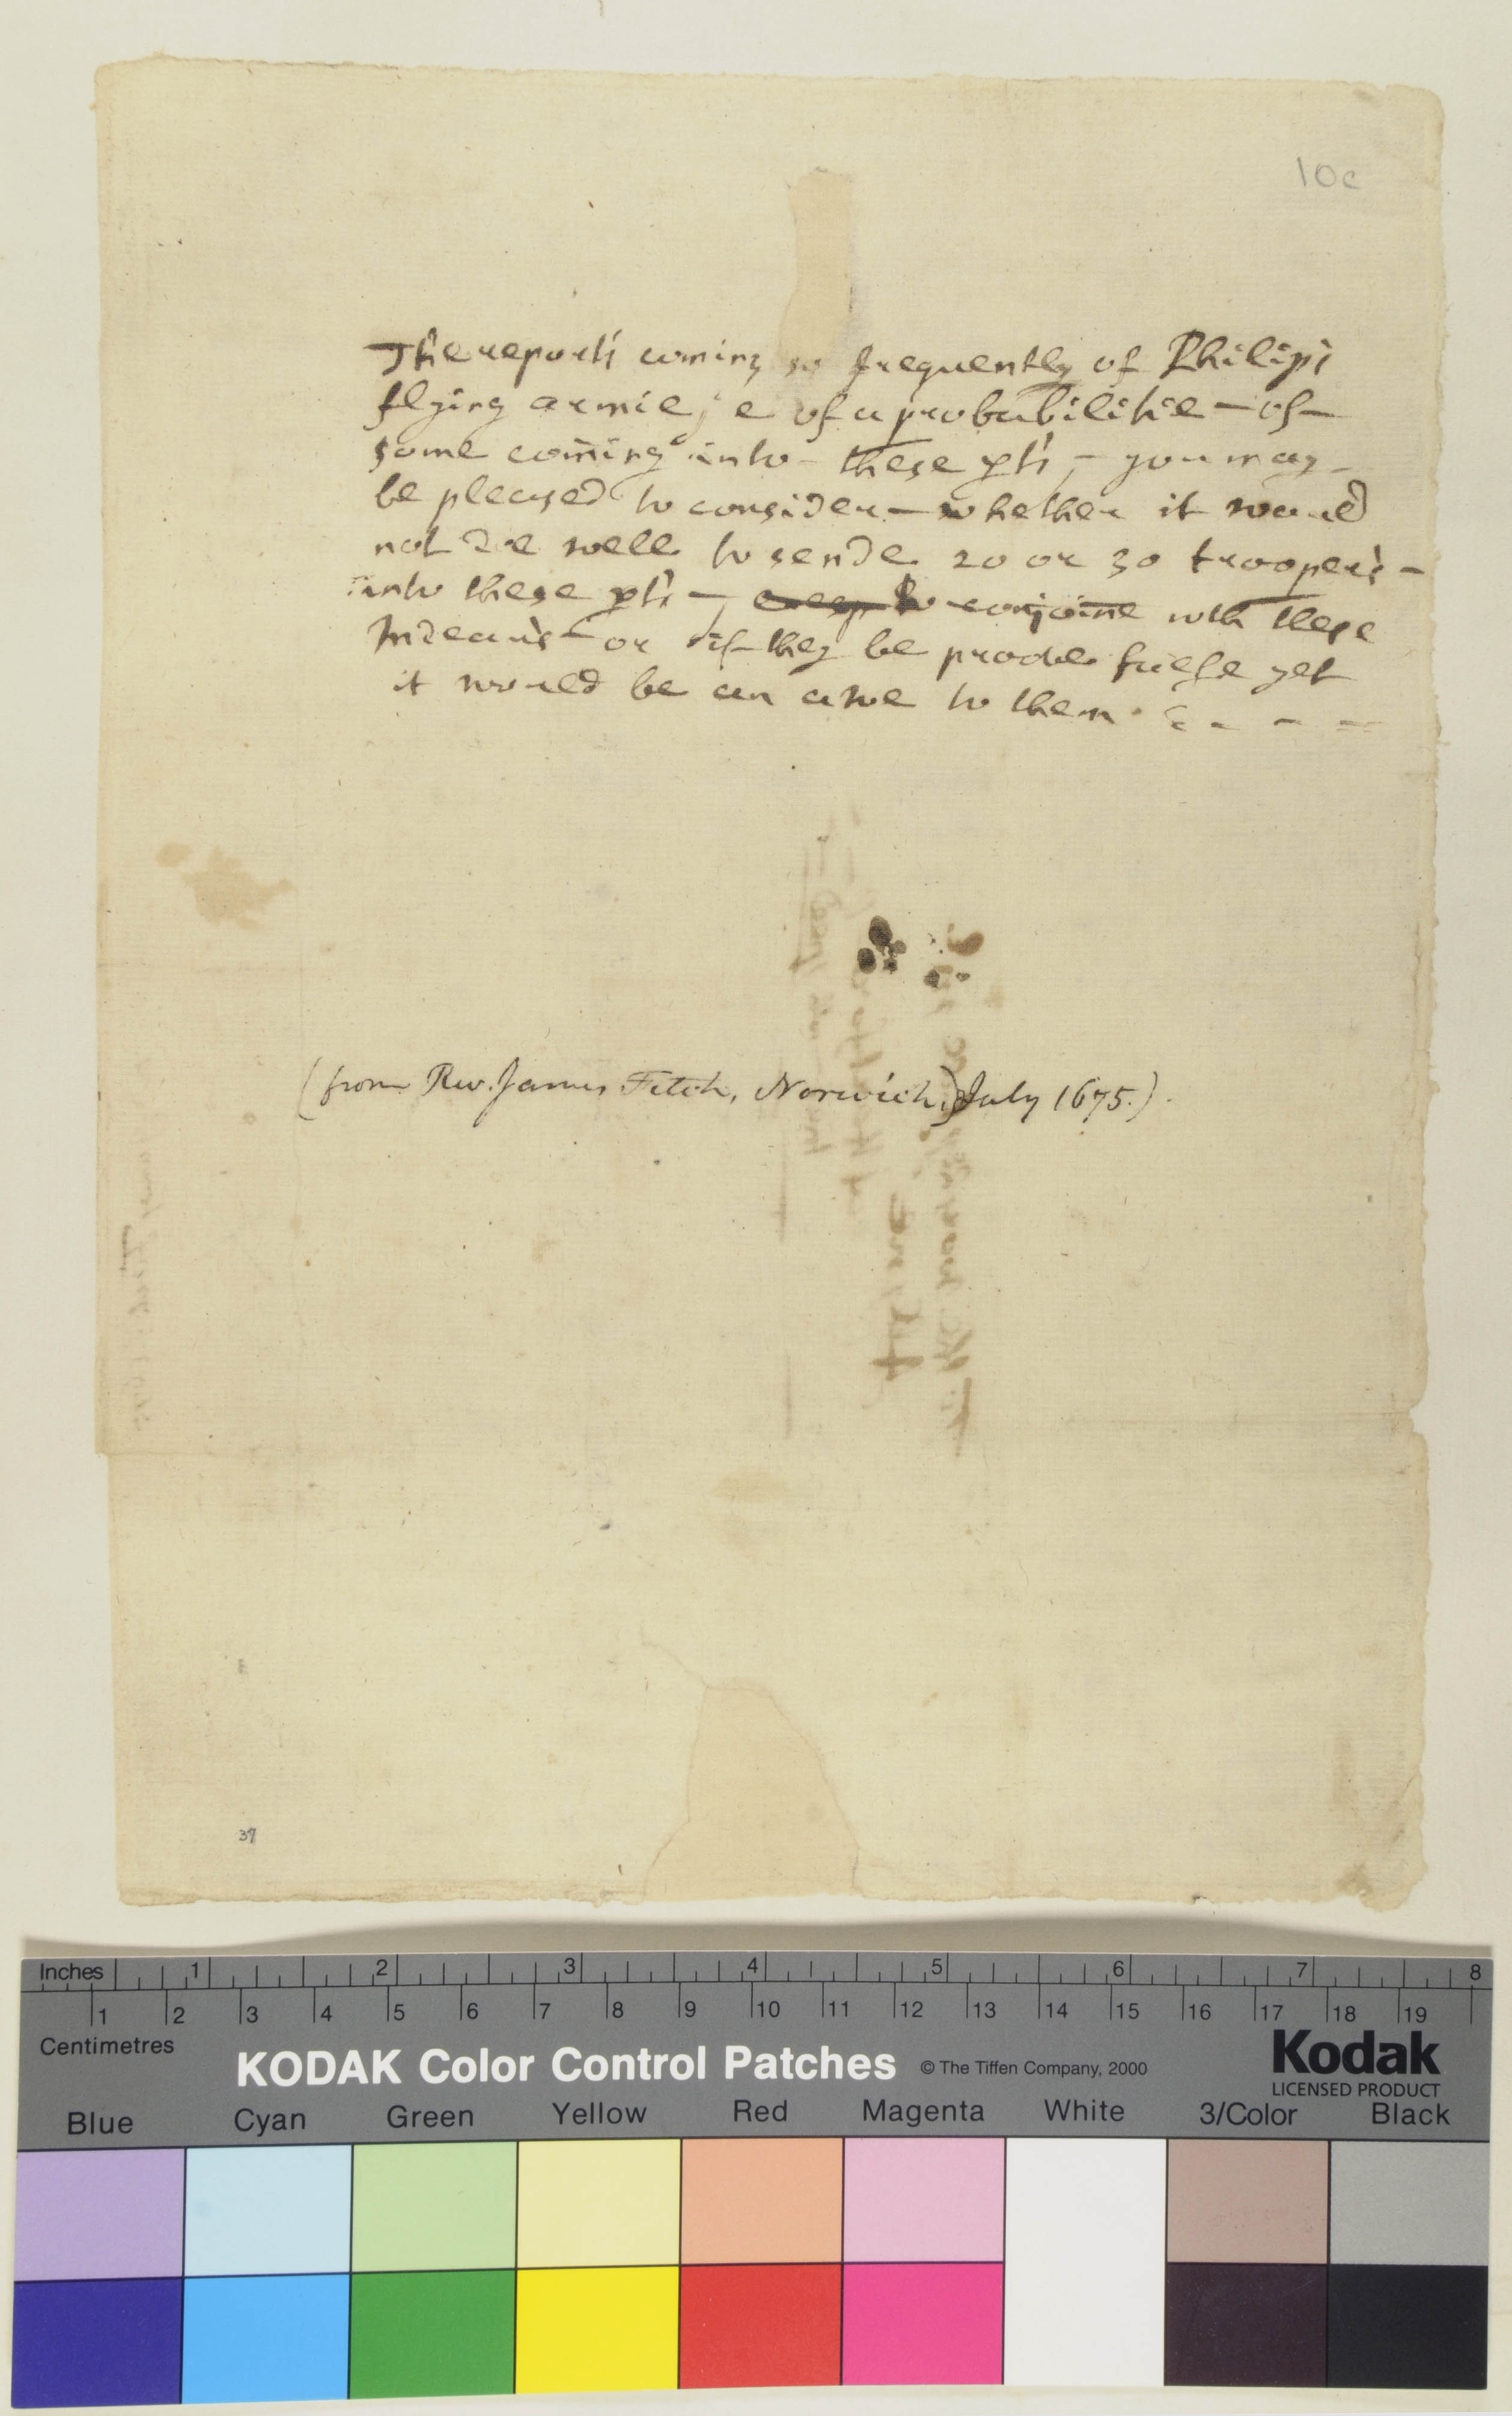 10c
The reports coming so frequently of Philips
flying armie, e of a probabilitie - of -
some coming into these pts, - you may -
be pleased to consider - whether it would
not doe well to sende 20 or 30 troopers -
into these pts -, to conjoine with these
Indeans - or if they be prove false yet
it would be an awe to them.
(from Rev. James Fitch, Norwich,) July 1675.)
37
Inches 1 2 3 4 5 6 7 8
1 2 3 4 5 6 7 8 9 10 11 12 13 14 15 16 17 18 19
Centimetres
KODAK Color Control Patches © The Tiffen Company, 2000 Kodak
LICENSED PRODUCT
Blue Cyan Green Yellow Red Magenta White 3/Color Black